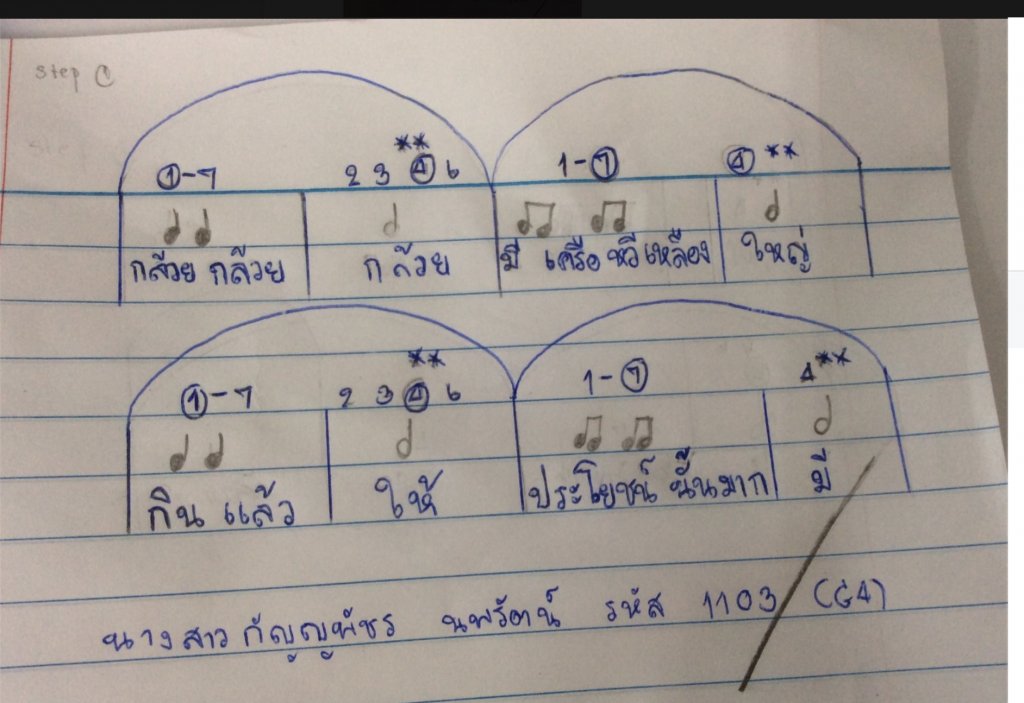 step ①
①-7 2 3 ④** 6 1-⑦ ④**
กล้วย กล้วย กล้วย มี เครือ หวี เหลือง ใหญ่
①-7 2 3 ④** 6 1-⑦ 4**
กิน แล้ว ให้ ประโยชน์ นั้นมาก มี
นางสาว กัญญพัชร นพรัตน์ รหัส 1103 (G4)